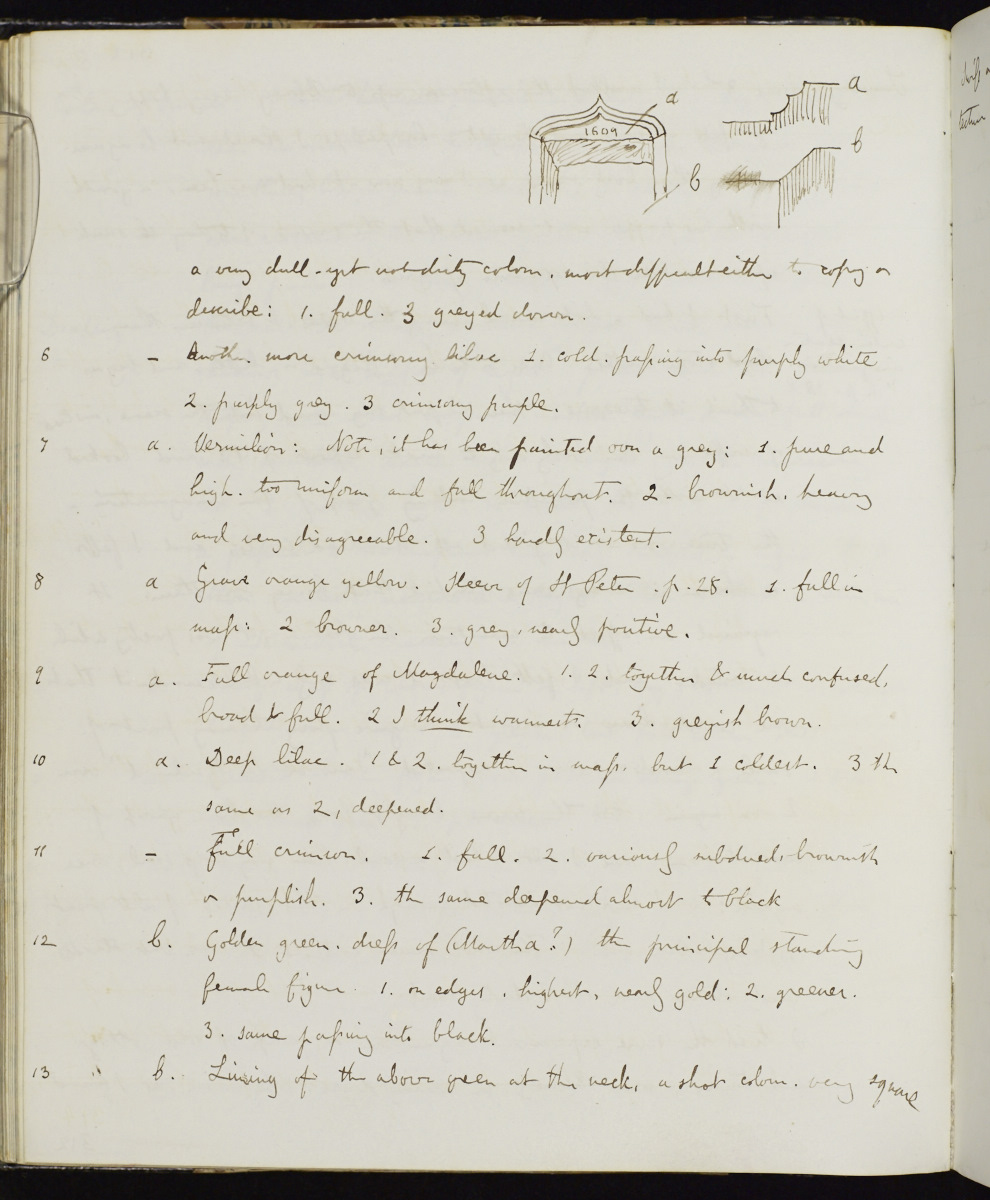 a
1609
a
b
b
a very dull - yet not dirty colour. most difficult either to copy or
describe: 1. full. 3 greyed down.
6 - Another. more crimsony lilac 1. cold. passing into purply white
2. purply grey. 3 crimsony purple.
7 a. Vermilion: Note, it has been painted over a grey: 1. pure and
high. too uniform and full throughout. 2. brownish, heavy
and very disagreeable. 3 hardly existent.
8 a Grave orange yellow. Sleeve of St Peter. p. 28. 1. full in
mass: 2 browner. 3. grey, nearly positive.
9 a. Full orange of Magdalene. 1. 2. together & much confused,
broad & full. 2 I think warmest. 3. greyish brown.
10 a. Deep lilac. 1 & 2. together in mass. but 1 coldest. 3 the
same as 2, deepened.
11 - Full crimson. 1. full. 2. variously subdued - brownish
or purplish. 3. the same deepened almost to black
12 b. Golden green. dress of (Martha?) the principal standing
female figure. 1. on edges, highest, nearly gold: 2. greener.
3. same passing into black.
13 b. Lining of the above green at the neck, a shot colour. very square